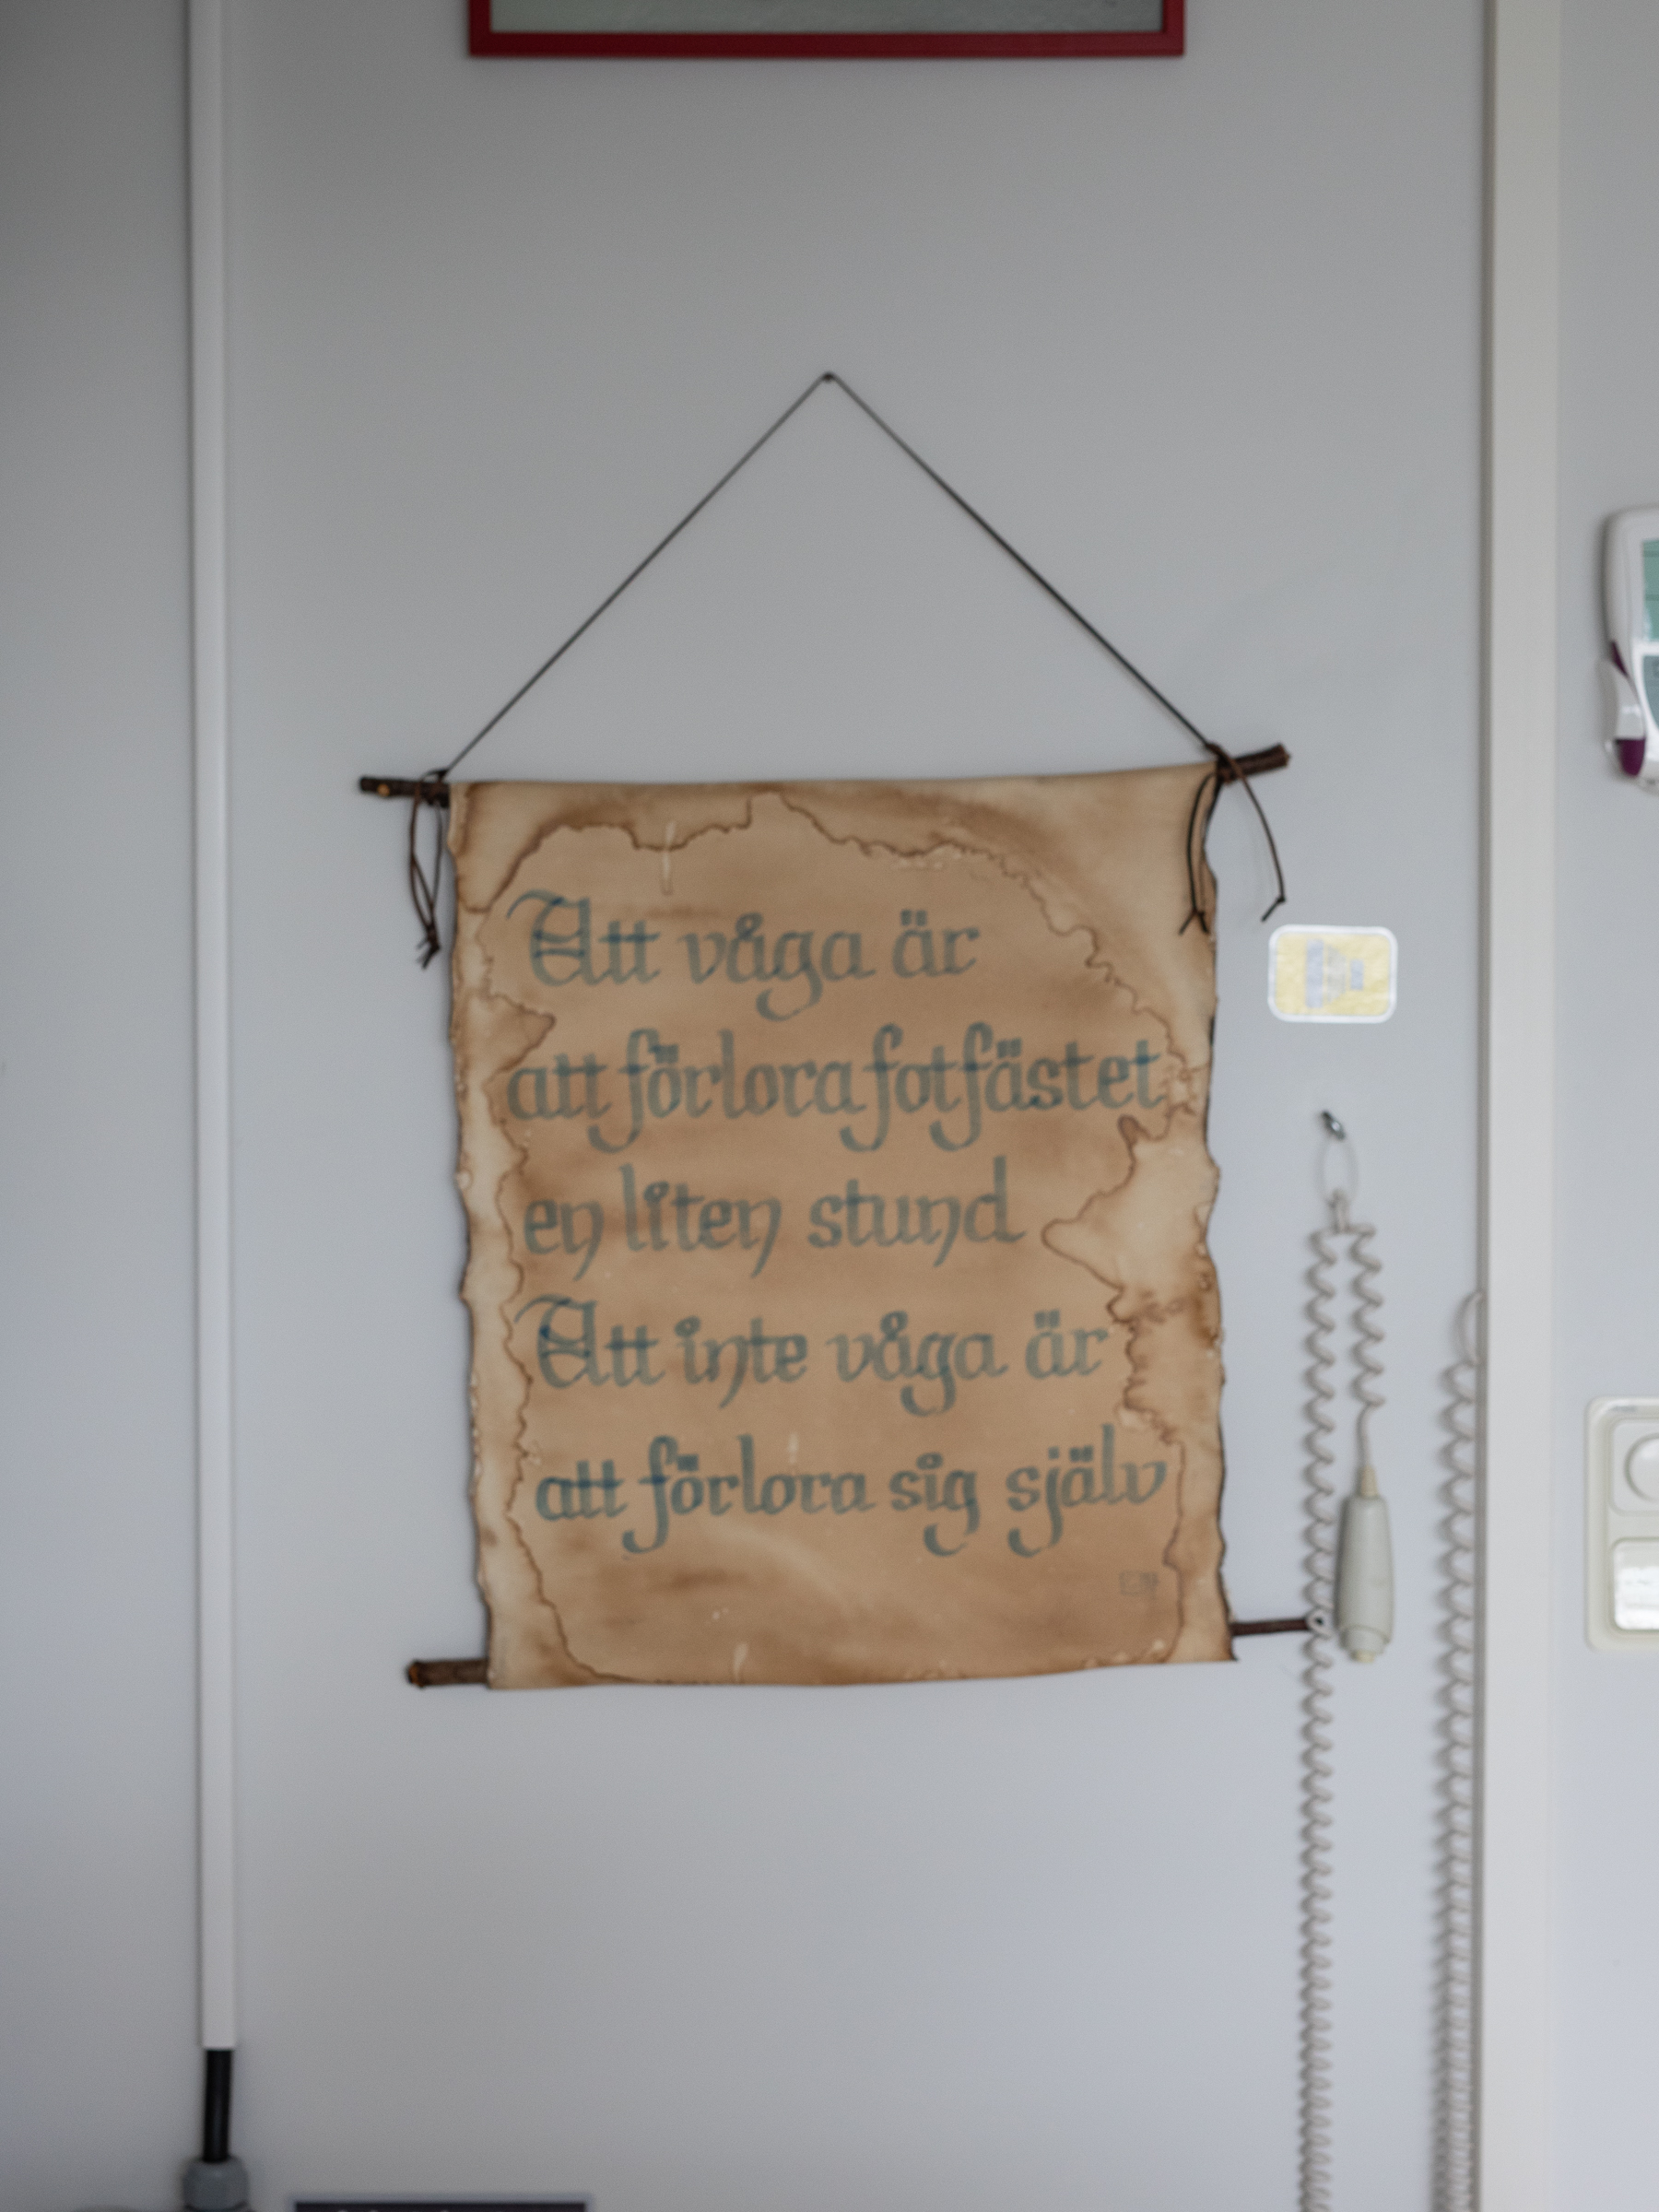 Att våga är
att förlora fotfästet
en liten stund
Att inte våga är
att förlora sig själv